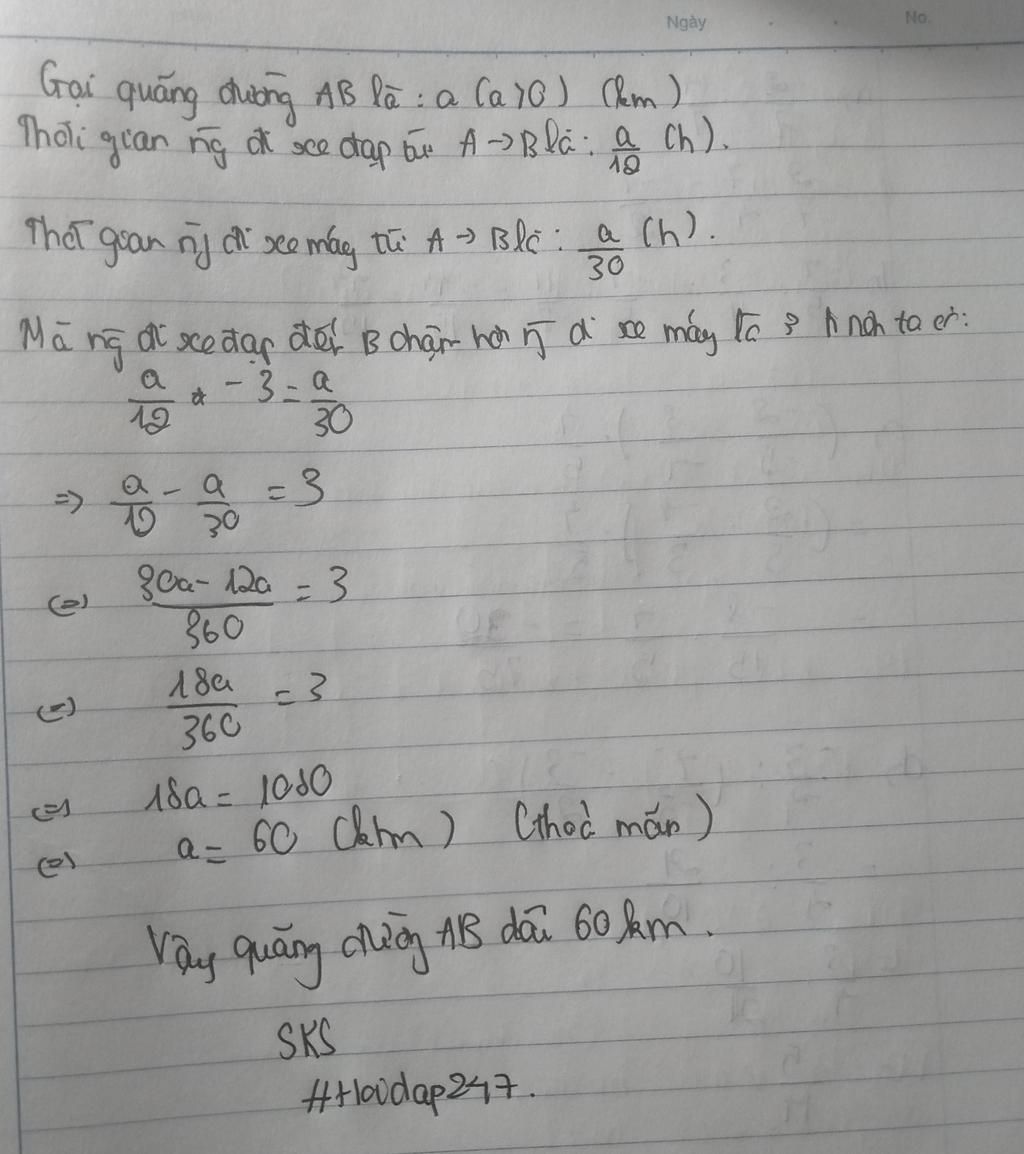 Ngày No.
Gọi quãng đường AB là : a (a>0) (km)
Thời gian ng̃ đi xe đạp từ A → B là : a/12 (h).
Thời gian ng̃ đi xe máy từ A → B là : a/30 (h).
Mà ng̃ đi xe đạp đến B chậm hơn ng̃ đi xe máy là 3 h nên ta có:
a/12 - 3 = a/30
=> a/12 - a/30 = 3
(=) 30a - 12a/360 = 3
(=) 18a/360 = 3
(=) 18a = 1080
(=) a = 60 (km) (thoả mãn)
Vậy quãng đường AB dài 60 km.
SKS
#Hoidap247.